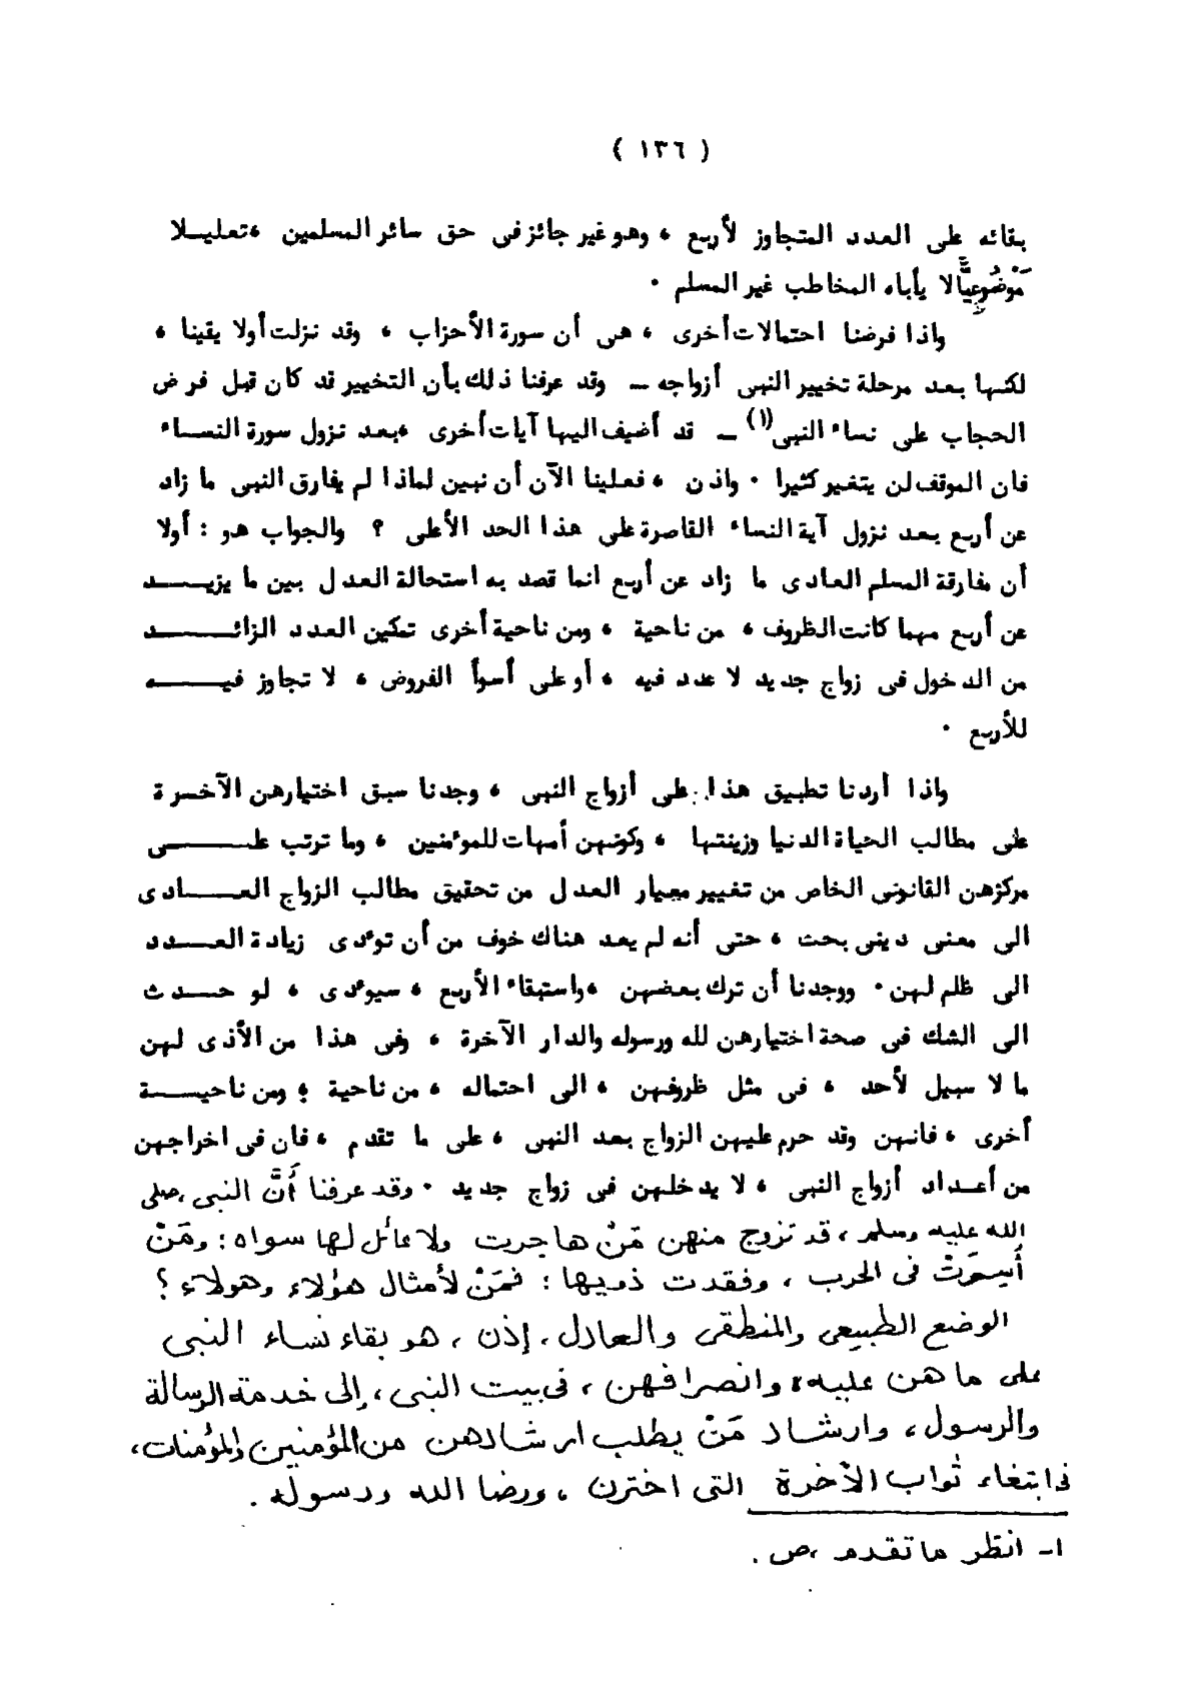 ( ١٣٦ )
بقائه على العدد المتجاوز لأربع ، وهو غير جائز فى حق سائر المسلمين ، تعليلا
مَوْضُوعِيًّا لا يأباه المخاطب غير المسلم .
واذا فرضنا احتمالات أخرى ، هى أن سورة الأحزاب ، وقد نزلت أولا يقينا ،
لكنها بعد مرحلة تخيير النبى أزواجه ــ وقد عرفنا ذلك بأن التخيير قد كان قبل فرض
الحجاب على نساء النبى(١) ــ قد أضيف اليها آيات أخرى ، بعد نزول سورة النساء
فان الموقف لن يتغير كثيرا . واذن ، فعلينا الآن أن نبين لماذا لم يفارق النبى ما زاد
عن أربع بعد نزول آية النساء القاصرة على هذا الحد الأعلى ؟ والجواب هو : أولا
أن مفارقة المسلم العادى ما زاد عن أربع انما قصد به استحالة العدل بين ما يزيد
عن أربع مهما كانت الظروف ، من ناحية ، ومن ناحية أخرى تمكين العدد الزائد
من الدخول فى زواج جديد لا عدد فيه ، أو على أسوأ الفروض ، لا تجاوز فيه
للأربع .
واذا أردنا تطبيق هذا على أزواج النبى ، وجدنا سبق اختيارهن الآخرة
على مطالب الحياة الدنيا وزينتها ، وكونهن أمهات للموءمنين ، وما ترتب على
مركزهن القانونى الخاص من تغيير معيار العدل من تحقيق مطالب الزواج العادى
الى معنى دينى بحت ، حتى أنه لم يعد هناك خوف من أن توءدى زيادة العدد
الى ظلم لهن . ووجدنا أن ترك بعضهن ، واستبقاء الأربع ، سيوءدى ، لو حدث
الى الشك فى صحة اختيارهن لله ورسوله والدار الآخرة ، وفى هذا من الأذى لهن
ما لا سبيل لأحد ، فى مثل ظروفهن ، الى احتماله ، من ناحية ؛ ومن ناحية
أخرى ، فانهن وقد حرم عليهن الزواج بعد النبى ، على ما تقدم ، فان فى اخراجهن
من أعداد أزواج النبى ، لا يدخلهن فى زواج جديد . وقد عرفنا أَنَّ النبى ،صلى
الله عليه وسلم ، قد تزوج منهن مَنْ هاجرت ولا عائل لها سواه ؛ ومَنْ
أُسِرَتْ فى الحرب ، وفقدت ذويها ؛ فمَنْ لأمثال هؤلاء وهولاء ؟
الوضع الطبيعى والمنطقى والعادل ، إذن ، هو بقاء نساء النبى
على ما هن عليه ، وانصرافهن ، فى بيت النبى ، إلى خدمة الرسالة
والرسول ، وارشاد مَنْ يطلب ارشادهن من المؤمنين والمؤمنات ،
فى ابتغاء ثواب الآخرة التى اخترن ، ورضا الله ورسوله .
١ـ انظر ما تقدم ،ص .